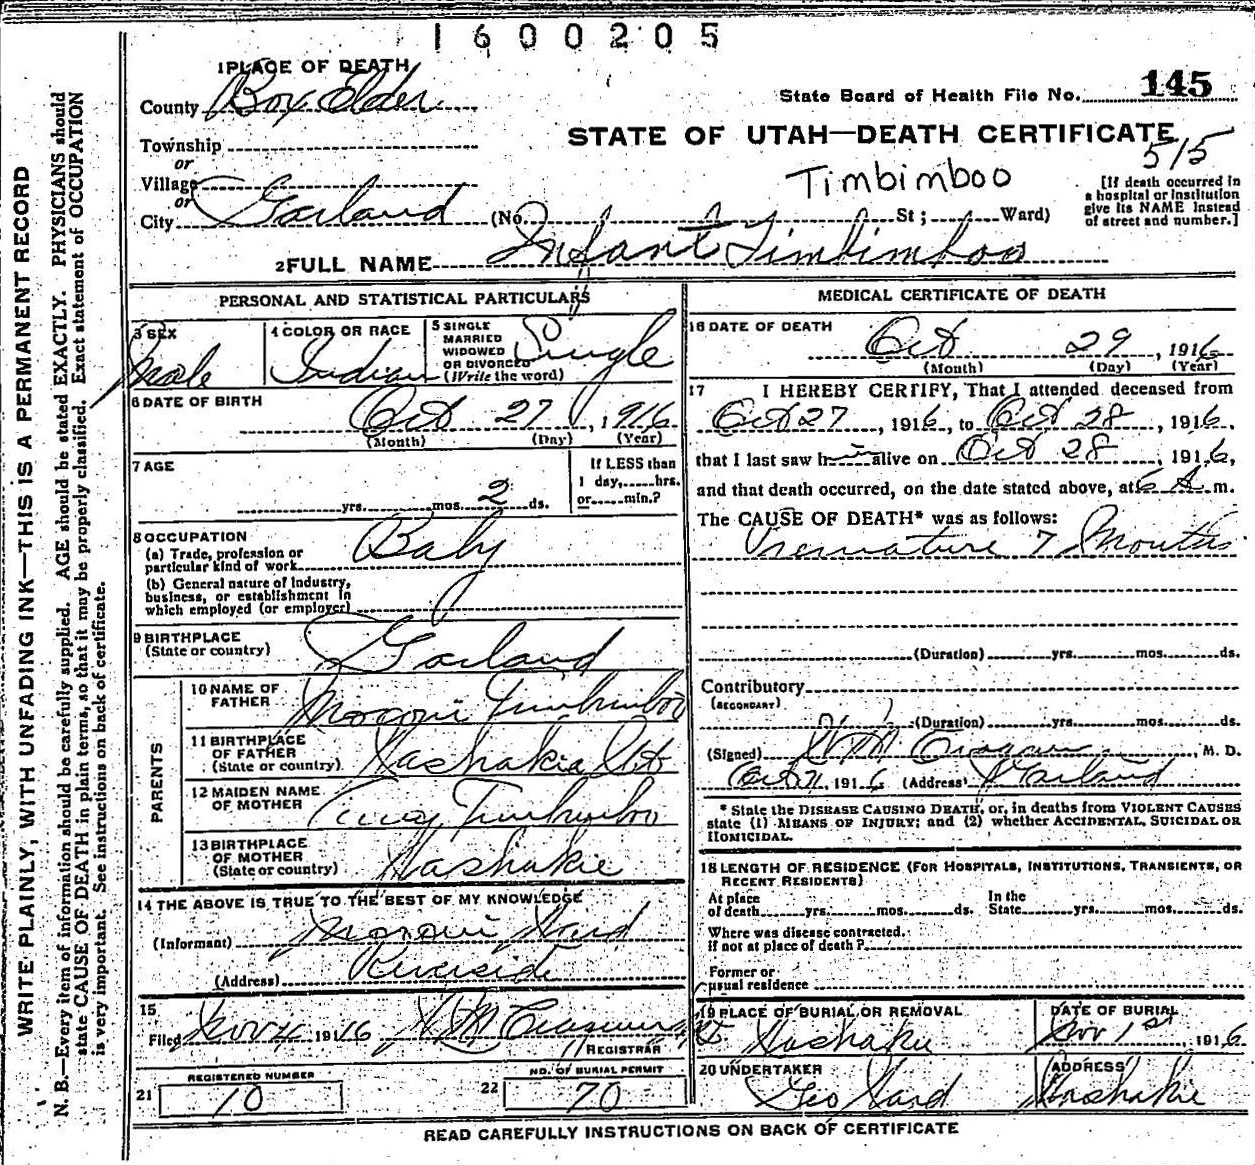 1600205
1 PLACE OF DEATH
County Box Elder
State Board of Health File No. 145
STATE OF UTAH—DEATH CERTIFICATE
515
Township
or
Village
or
City Garland (No. St; Ward)
Timbimboo
[If death occurred in
a hospital or institution
give its NAME instead
of street and number.]
2 FULL NAME Infant Timbimboo
PERSONAL AND STATISTICAL PARTICULARS
3 SEX
Male
4 COLOR OR RACE
Indian
5 SINGLE
MARRIED
WIDOWED
OR DIVORCED
(Write the word)
Single
6 DATE OF BIRTH
Oct 27, 1916
(Month) (Day) (Year)
7 AGE
yrs. mos. 2 ds.
If LESS than
1 day, hrs.
or min.?
8 OCCUPATION
(a) Trade, profession or
particular kind of work
Baby
(b) General nature of industry,
business, or establishment in
which employed (or employer)
9 BIRTHPLACE
(State or country)
Garland
PARENTS
10 NAME OF
FATHER
Moroni Timbimboo
11 BIRTHPLACE
OF FATHER
(State or country)
Washakie Ut
12 MAIDEN NAME
OF MOTHER
Timbimboo
13 BIRTHPLACE
OF MOTHER
(State or country)
Washakie
14 THE ABOVE IS TRUE TO THE BEST OF MY KNOWLEDGE
(Informant) Moroni Ward
(Address) Riverside
15
Filed Nov 4 1916
REGISTRAR
REGISTERED NUMBER
21 10
NO. OF BURIAL PERMIT
22 70
MEDICAL CERTIFICATE OF DEATH
16 DATE OF DEATH
Oct 29, 1916
(Month) (Day) (Year)
17 I HEREBY CERTIFY, That I attended deceased from
Oct 27, 1916, to Oct 28, 1916,
that I last saw h alive on Oct 28, 1916,
and that death occurred, on the date stated above, at 6 A m.
The CAUSE OF DEATH* was as follows:
Premature 7 Months
(Duration) yrs. mos. ds.
Contributory
(SECONDARY)
(Duration) yrs. mos. ds.
(Signed) M. D.
Oct 1916 (Address) Garland
* State the DISEASE CAUSING DEATH, or, in deaths from VIOLENT CAUSES
state (1) MEANS OF INJURY; and (2) whether ACCIDENTAL, SUICIDAL OR
HOMICIDAL.
18 LENGTH OF RESIDENCE (FOR HOSPITALS, INSTITUTIONS, TRANSIENTS, OR
RECENT RESIDENTS)
At place
of death yrs. mos. ds.
In the
State yrs. mos. ds.
Where was disease contracted,
if not at place of death?
Former or
usual residence
19 PLACE OF BURIAL OR REMOVAL
Washakie
DATE OF BURIAL
Nov 1st, 1916
20 UNDERTAKER
Geo Ward
ADDRESS
Washakie
READ CAREFULLY INSTRUCTIONS ON BACK OF CERTIFICATE
WRITE PLAINLY, WITH UNFADING INK—THIS IS A PERMANENT RECORD
N. B.—Every item of information should be carefully supplied. AGE should be stated EXACTLY. PHYSICIANS should
state CAUSE OF DEATH in plain terms, so that it may be properly classified. Exact statement of OCCUPATION
is very important. See instructions on back of certificate.